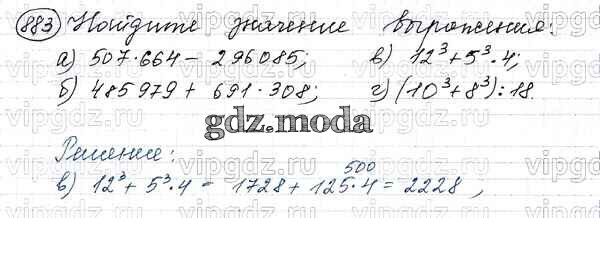 883 Найдите значение выражения:
а) 507·664 - 296085; в) 12³+5³·4;
б) 485979 + 691·308; г) (10³+8³):18.
gdz.moda
Решение:
500
в) 12³+5³·4 = 1728+125·4=2228,